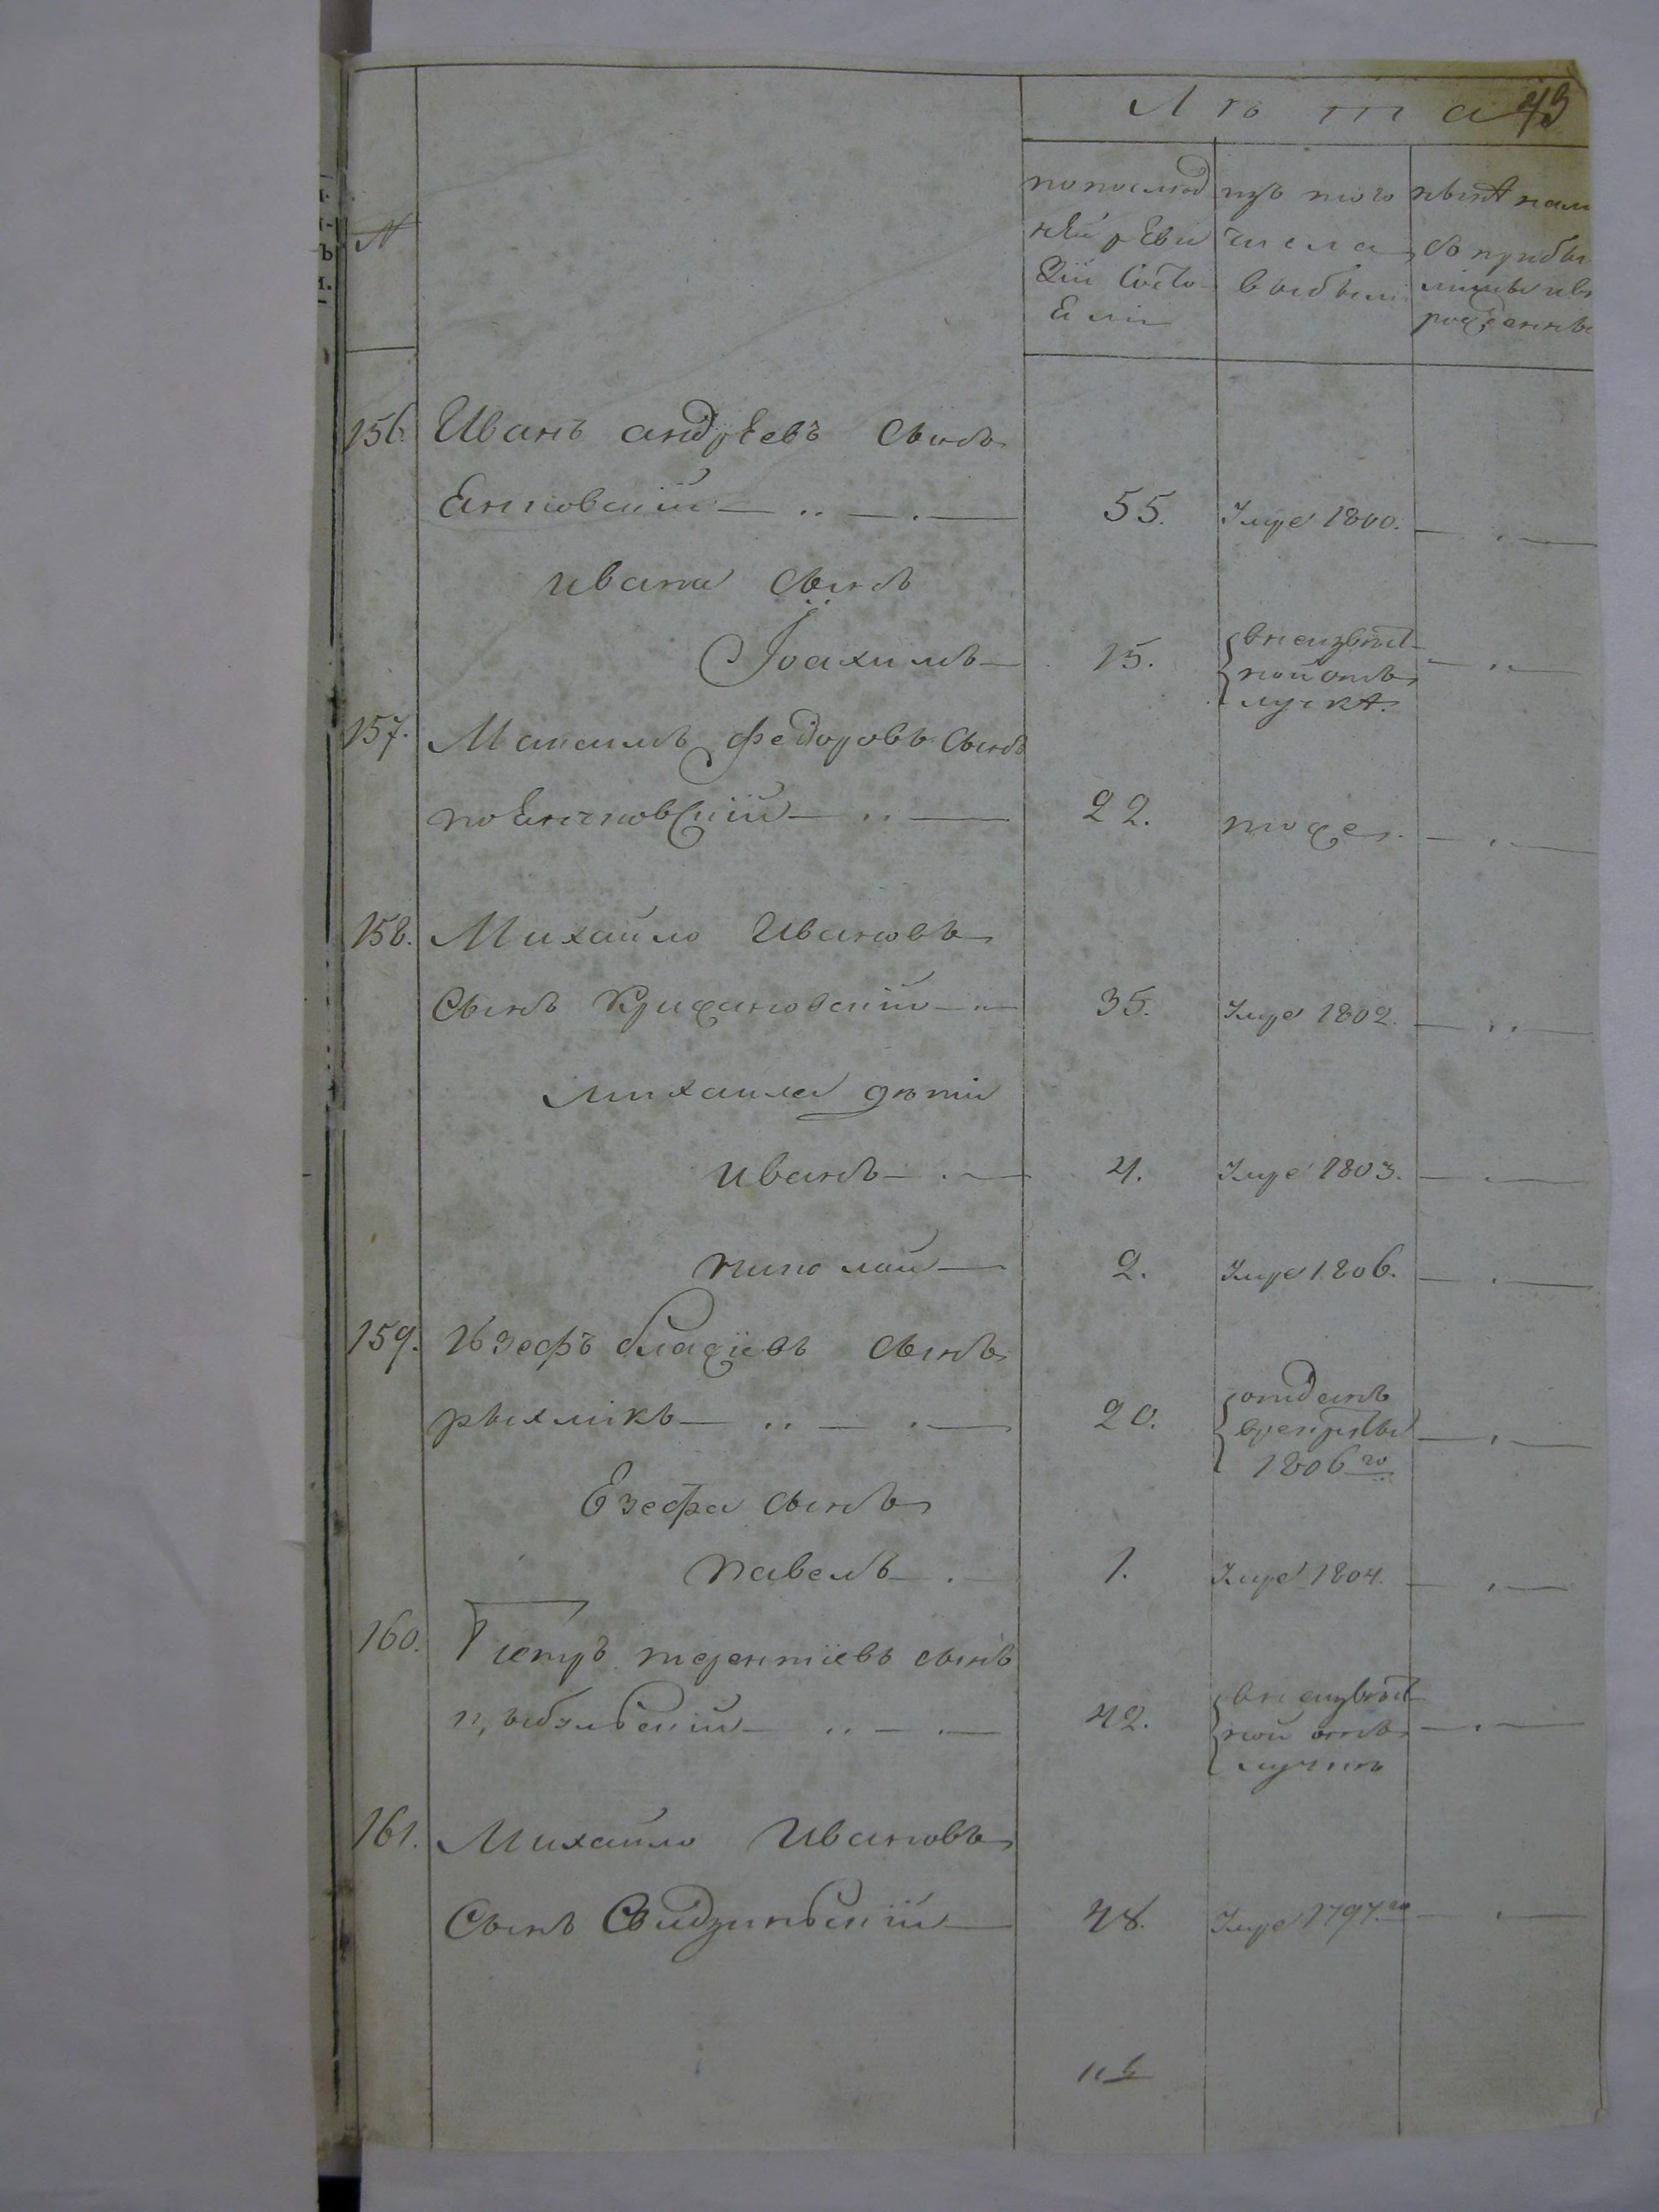 Лѣта
43
№
попослѣд
нѣй рѣви
зіи Состо
Ели
изъ того
числа
выбыли
нынѣ на ли
156. Иванъ андрѣевъ Сынъ
55. Умре 1800.
ивана Сынъ
Іоахимъ 15. внеизвѣст
ной отъ
лучкѣ.
157. Максимъ федоровъ Сынъ
22. тоже
158. Михайло Ивановъ
Сынъ Крижановскій 35. Умре 1802.
михаила дѣти
иванъ 4. Умре 1803.
николай 2. Умре 1806.
159. блажіевъ Сынъ
рыхликъ 20. отданъ
врекруты
1806го
Езефа сынъ
павелъ 1. Умре 1804.
160. Петръ терентіевъ сынъ
42. внеизвѣст
ной отъ
лучкѣ
161. Михайло Ивановъ
Сынъ Свидзинскій 48. Умре 1797.го
11